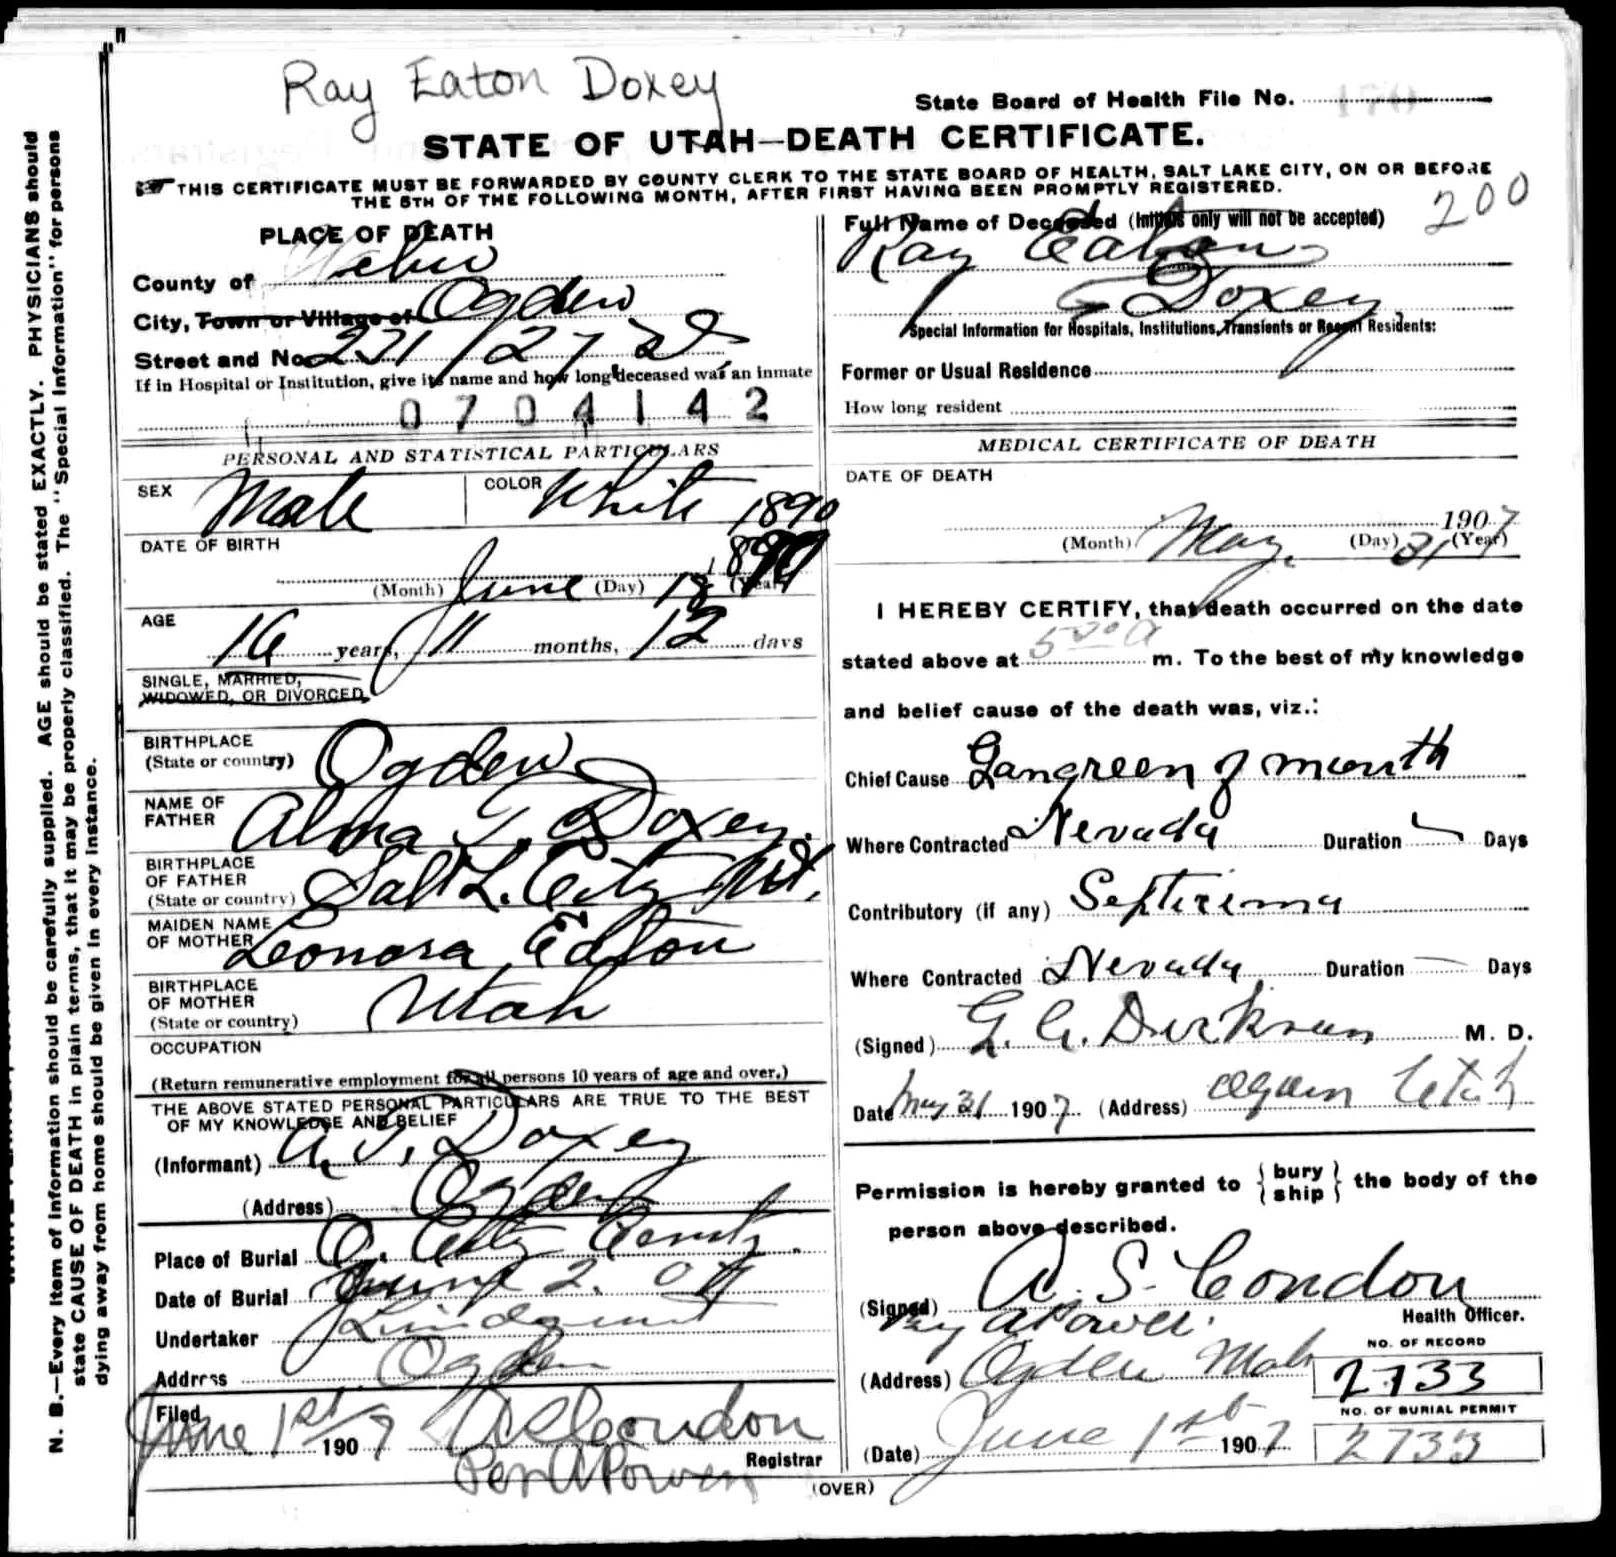 Ray Eaton Doxey
State Board of Health File No.
STATE OF UTAH—DEATH CERTIFICATE.
THIS CERTIFICATE MUST BE FORWARDED BY COUNTY CLERK TO THE STATE BOARD OF HEALTH, SALT LAKE CITY, ON OR BEFORE
THE 5TH OF THE FOLLOWING MONTH, AFTER FIRST HAVING BEEN PROMPTLY REGISTERED.
200
PLACE OF DEATH
County of Weber
City, Town or Village of Ogden
Street and No. 271 / 27 St
If in Hospital or Institution, give its name and how long deceased was an inmate
0704142
PERSONAL AND STATISTICAL PARTICULARS
SEX Male COLOR White
1890
DATE OF BIRTH
(Month) June (Day) (Year)
AGE
16 years, 11 months, 12 days
SINGLE, MARRIED,
WIDOWED, OR DIVORCED
BIRTHPLACE
(State or country) Ogden
NAME OF
FATHER Alma T. Doxey.
BIRTHPLACE
OF FATHER
(State or country) Salt L. City Ut.
MAIDEN NAME
OF MOTHER Leonora Eaton
BIRTHPLACE
OF MOTHER
(State or country) Utah
OCCUPATION
(Return remunerative employment for all persons 10 years of age and over.)
THE ABOVE STATED PERSONAL PARTICULARS ARE TRUE TO THE BEST
OF MY KNOWLEDGE AND BELIEF
(Informant) A. T. Doxey
(Address) Ogden
Place of Burial O. City Cemty.
Date of Burial June 2. 07
Undertaker Lindquist
Address Ogden
Filed
June 1st 1907 A S Condon
Registrar
Per A Power
(OVER)
Full Name of Deceased (Initials only will not be accepted)
Ray Eaton
Doxey
Special Information for Hospitals, Institutions, Transients or Recent Residents:
Former or Usual Residence
How long resident
MEDICAL CERTIFICATE OF DEATH
DATE OF DEATH
1907
(Month) May. (Day) 31 (Year)
I HEREBY CERTIFY, that death occurred on the date
stated above at 5 00 a m. To the best of my knowledge
and belief cause of the death was, viz.:
Chief Cause Gangreen of mouth
Where Contracted Nevada Duration Days
Contributory (if any) Septicima
Where Contracted Nevada Duration Days
(Signed) M. D.
Date May 31 1907. (Address) Ogden Utah
Permission is hereby granted to { bury
ship } the body of the
person above described.
(Signed) A. S. Condon
Health Officer.
By A Power.
NO. OF RECORD
(Address) Ogden 2733
NO. OF BURIAL PERMIT
(Date) June 1st 1907 2733
N. B.—Every item of information should be carefully supplied. AGE should be stated EXACTLY. PHYSICIANS should
state CAUSE OF DEATH in plain terms, that it may be properly classified. The "Special Information" for persons
dying away from home should be given in every instance.